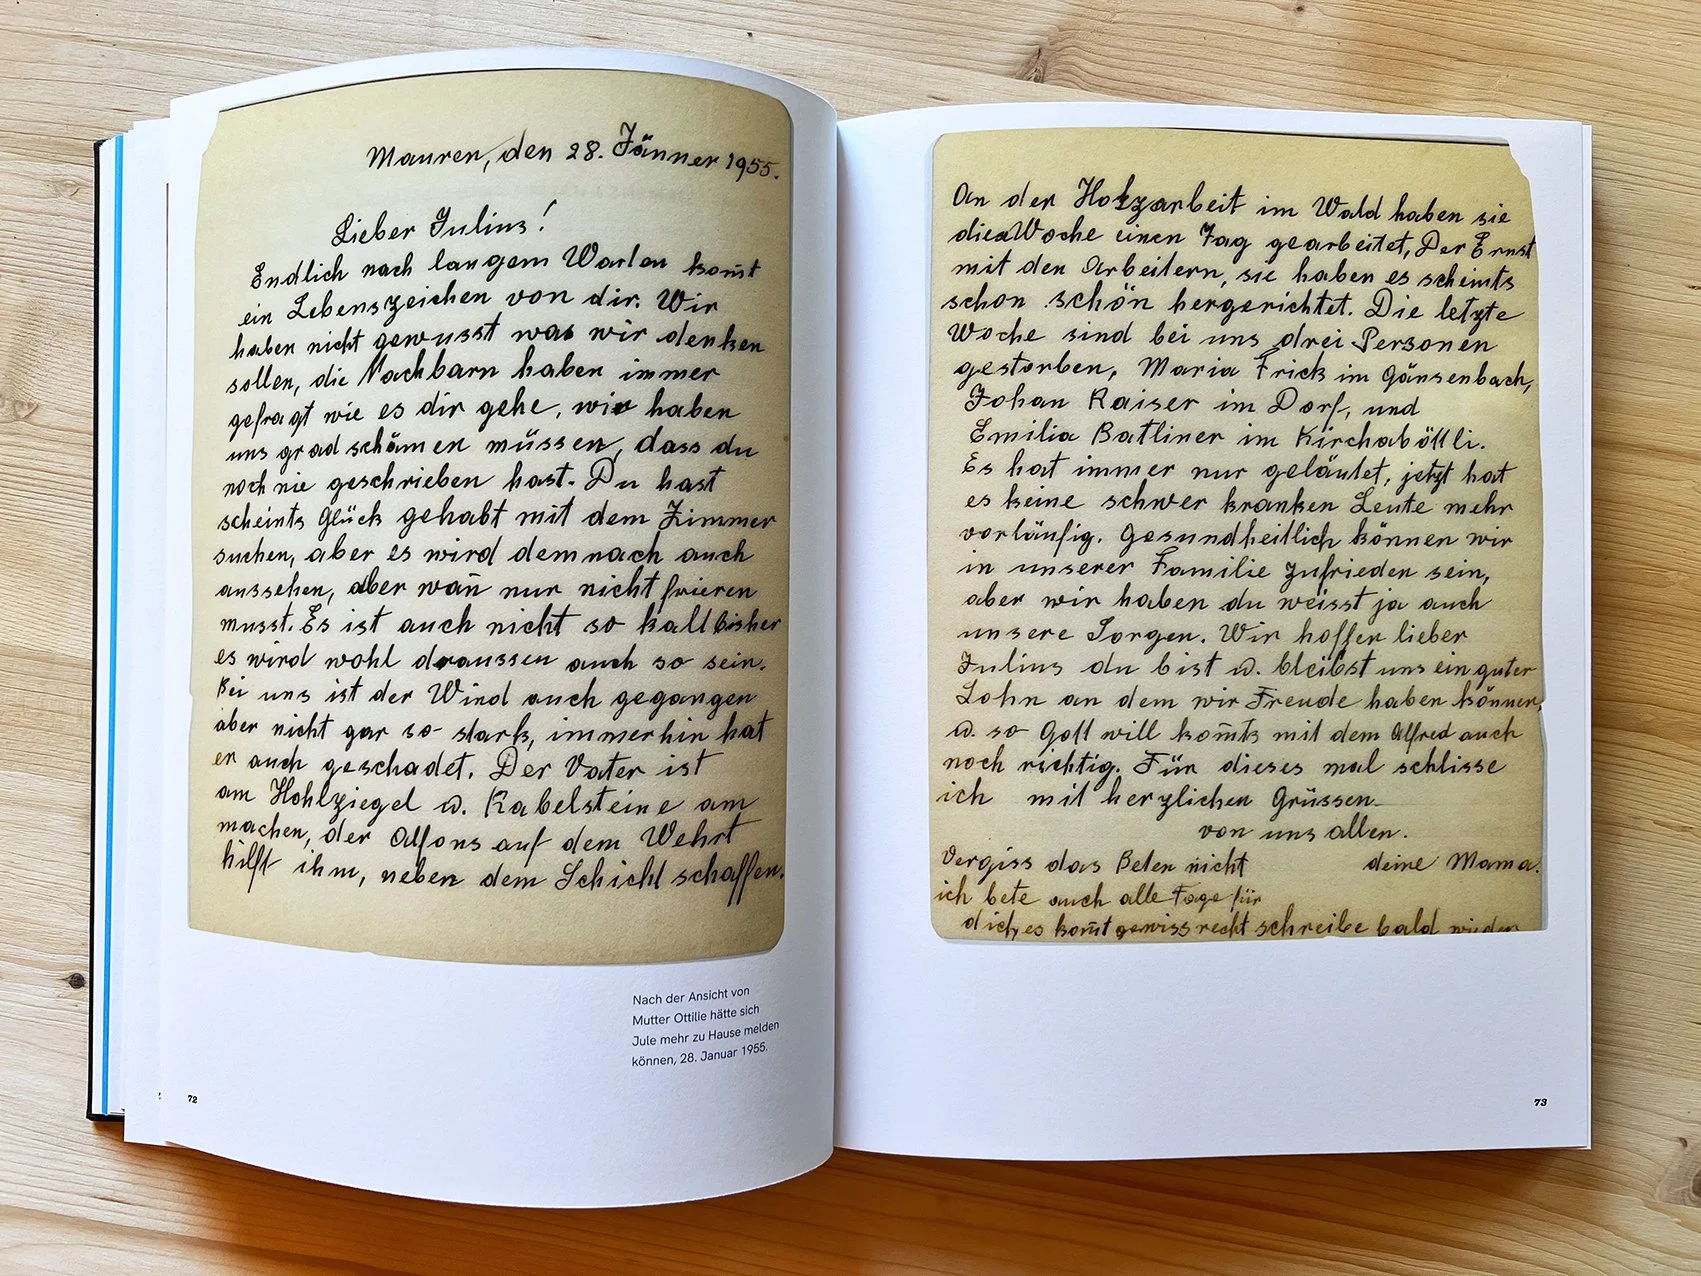 Mauren, den 28. Jänner 1955.
Lieber Julius!
Endlich nach langem Warten kom̄t
ein Lebenszeichen von dir. Wir
haben nicht gewusst was wir denken
sollen, die Nachbarn haben immer
gefragt wie es dir gehe, wir haben
uns grad schämen müssen, dass du
noch nie geschrieben hast. Du hast
scheints Glück gehabt mit dem Zimmer
suchen, aber es wird demnach auch
aussehen, aber wan̄ nur nicht frieren
musst. Es ist auch nicht so kalt bisher
es wird wohl draussen auch so sein.
Bei uns ist der Wind auch gegangen
aber nicht gar so stark, immerhin hat
er auch geschadet. Der Vater ist
am Hohlziegel u. Kabelsteine am
machen, der Alfons auf dem Wehrt
hilft ihm, neben dem Schicht schaffen.
Nach der Ansicht von
Mutter Ottilie hätte sich
Jule mehr zu Hause melden
können, 28. Januar 1955.
72
An der Holzarbeit im Wald haben sie
diese Woche einen Tag gearbeitet, Der Ernst
mit den Arbeitern, sie haben es scheints
schon schön hergerichtet. Die letzte
Woche sind bei uns drei Personen
gestorben, Maria Frick im Gänsenbach,
Johan Kaiser im Dorf, und
Emilia Batliner im Kirchaböttli.
Es hat immer nur geläutet, jetzt hat
es keine schwer kranken Leute mehr
vorläufig. Gesundheitlich können wir
in unserer Familie zufrieden sein,
aber wir haben du weisst ja auch
unsere Sorgen. Wir hoffen lieber
Julius du bist u. bleibst uns ein guter
Sohn an dem wir Freude haben können,
u. so Gott will kom̄ts mit dem Alfred auch
noch richtig. Für dieses mal schlisse
ich mit herzlichen Grüssen
von uns allen.
Vergiss das Beten nicht deine Mama.
ich bete auch alle Tage für
dich, es kom̄t gewiss recht schreibe bald wieder
73